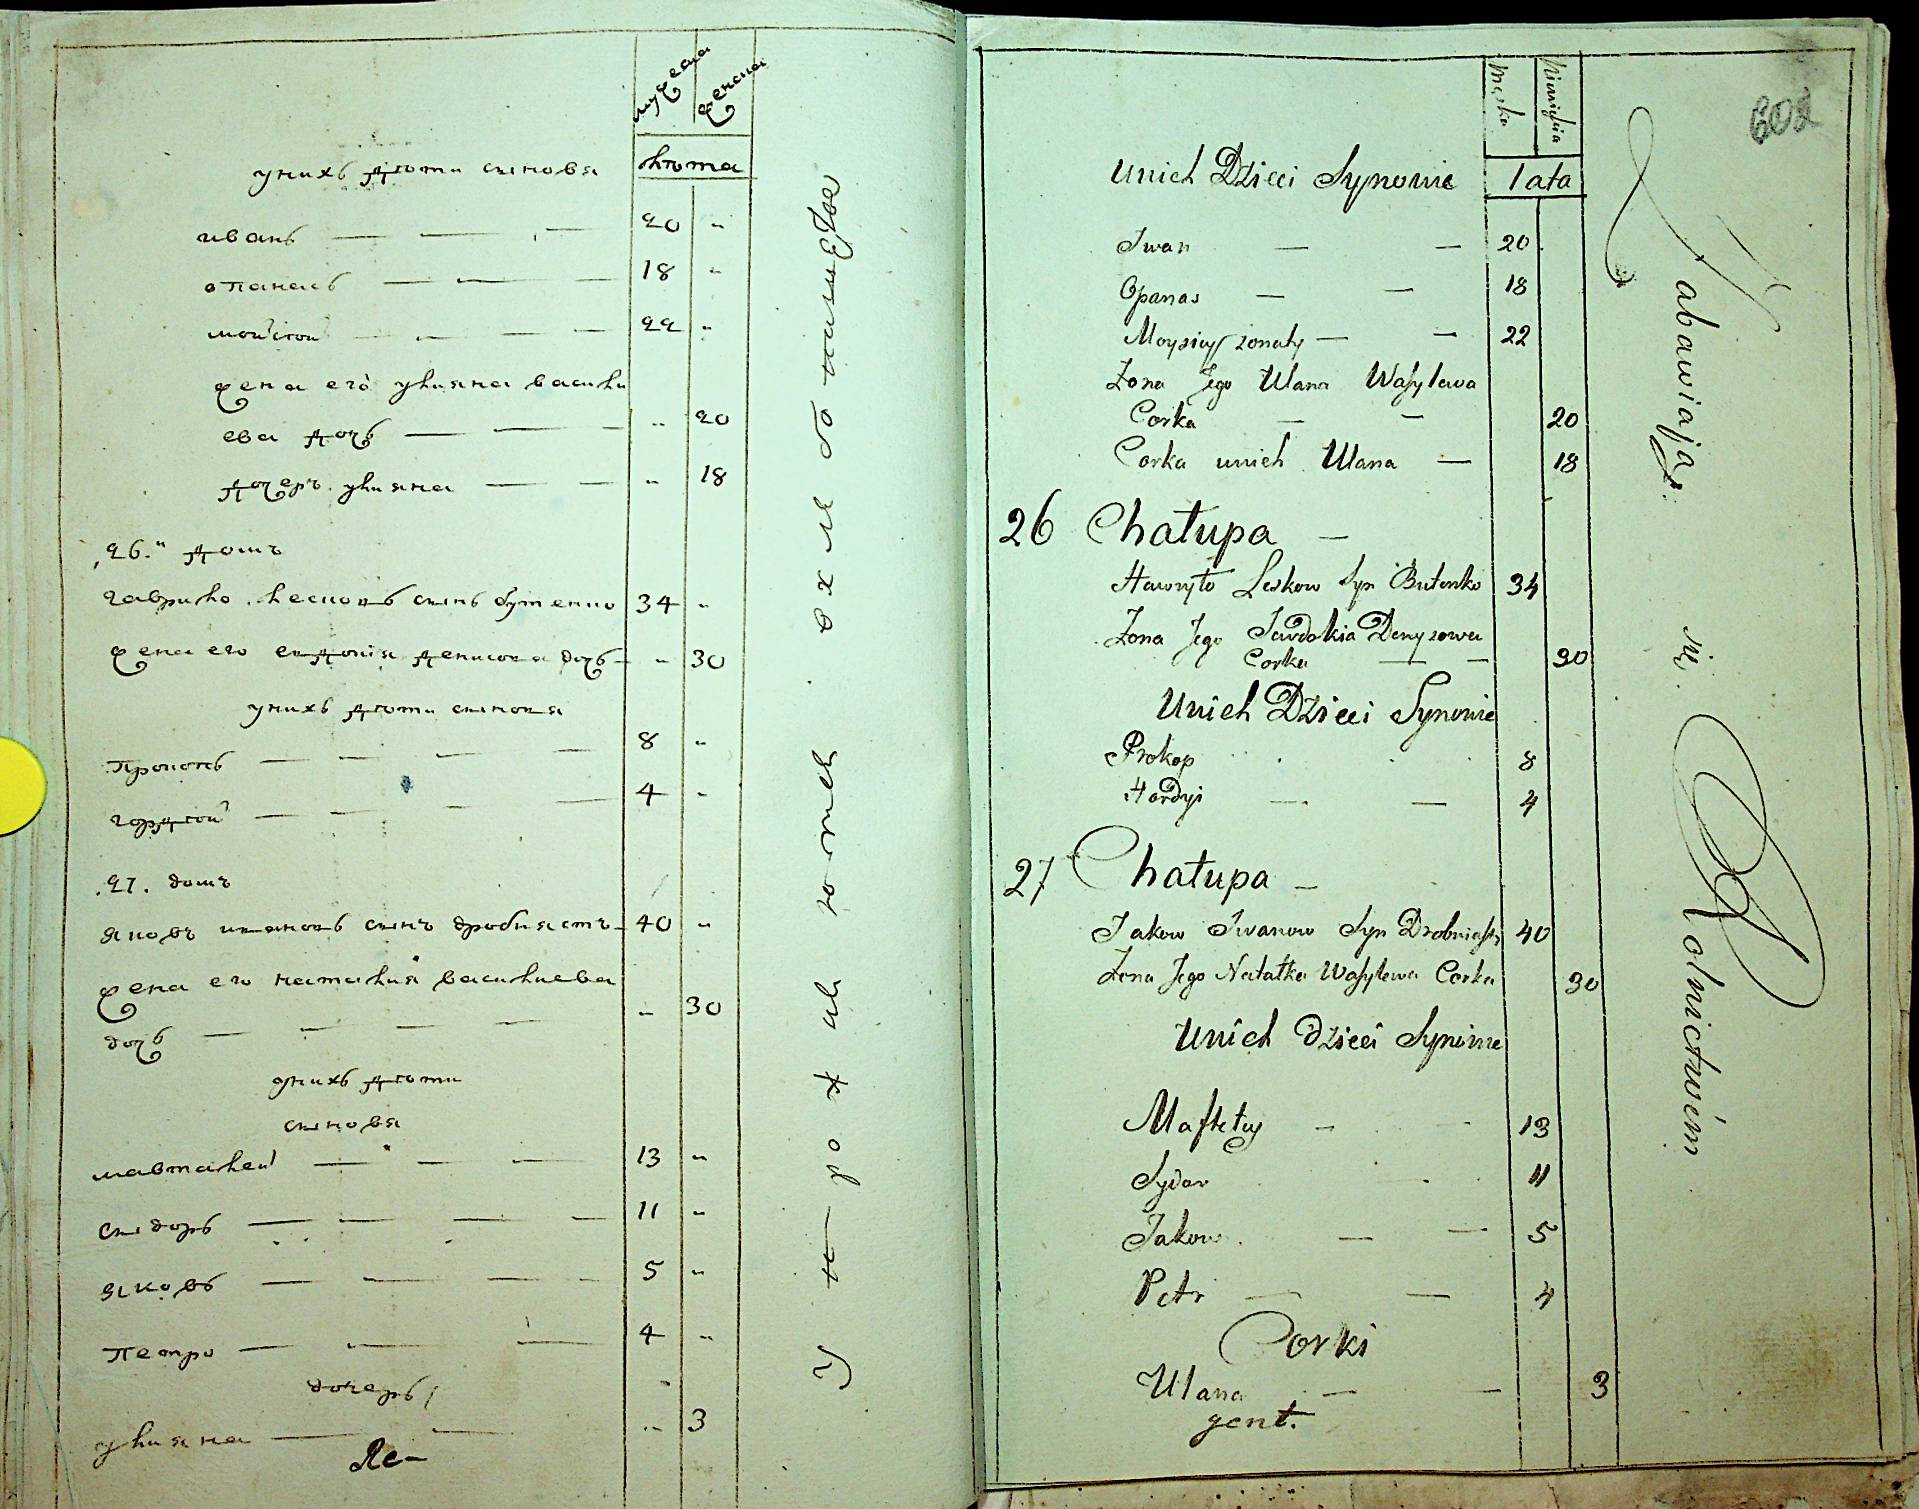 мужеска
женска
лѣта
у нихъ дѣти сыновя
иванъ — — — 20 „
опанасъ — — — 18 „
мойсей — — — 22 „
жена его улияна васили
ева дочь — — — „ 20
дочеръ улияна — — „ 18
„26.“ домъ
гаврило лесковъ сынъ бутенко 34 „
жена его евдокія денисова дочь — „ 30
у нихъ дѣти сыновя
прокопъ — — — — 8 „
гордѣй — — — — 4 „
27. домъ
яковъ ивановъ сынъ дробяастъ — 40 „
жена его наталия василиева
дочь — — — — „ 30
у нихъ дѣти
сыновя
мавталей — — — 13 „
сидоръ — — — — 11 „
яковъ — — — — 5 „
петро — — — 4 „
дочеръ
улияна — — „ 3
Ле-
Męska
Lata
Unich Dzieci Synowie
Iwan — — 20
Opanas — — 18
Moysiey żonaty — — 22
Żona Jego Ulana Wasylewa
Corka — — 20
Corka unich Ulana — 18
26 Chałupa —
Hawryło Leskow Syn Butenko 34
Żona Jego Jewdokia Denysowa
Corka — — 30
Unich Dzieci Synowie
Prokop 8
Hordyi — — 4
27 Chałupa —
Jakow Iwanow Syn Drobniasty 40
Żona Jego Natałka Wasylewa Corka 30
Unich dzieci Synowie
Maftety — 13
Sydor 11
Jakow — — 5
Petr — — 4
Corki
Ulana — — 3
gent.
Zabawiają się Rolnictwem